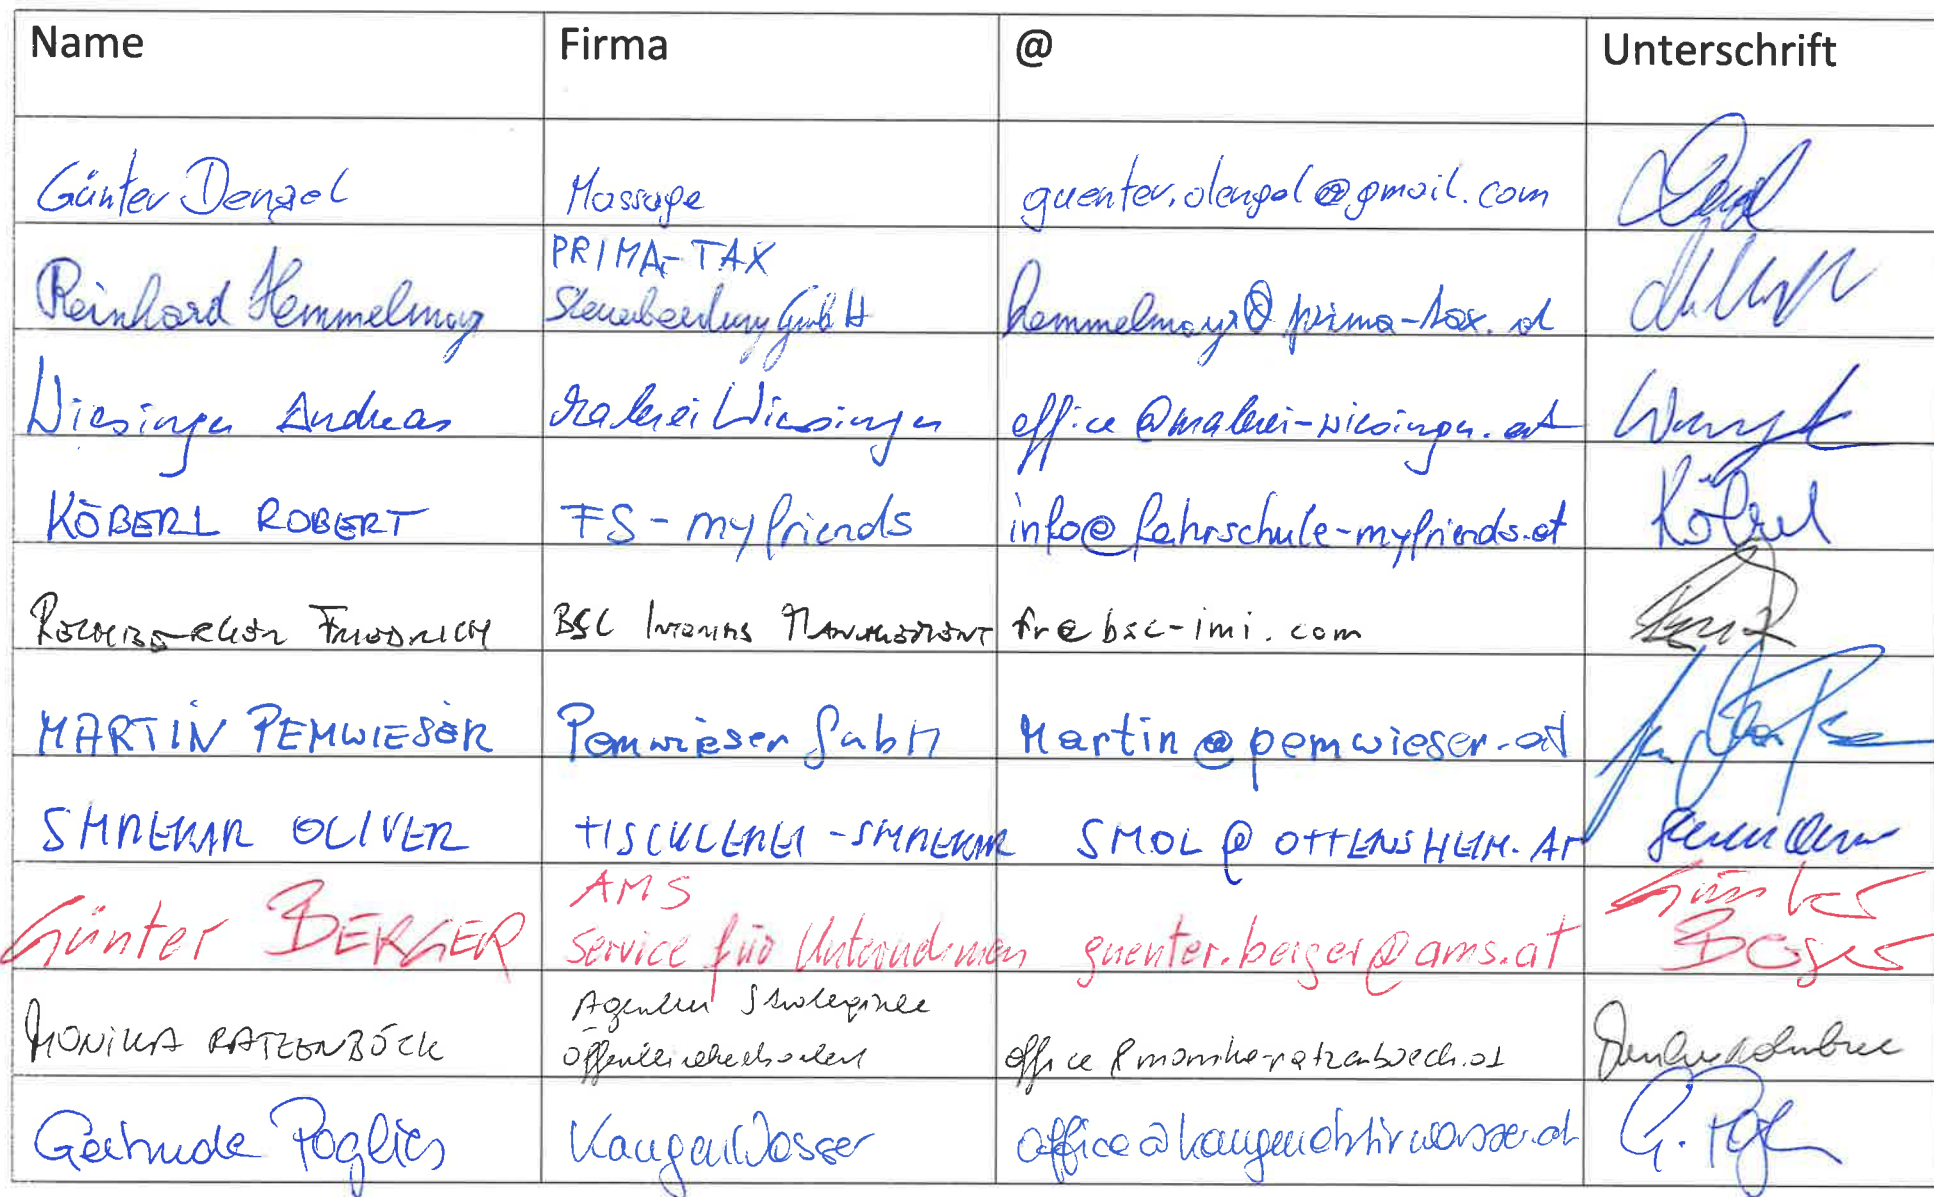 Name Firma @ Unterschrift
Günter Dengel Massage guenter.dengel@gmail.com
PRIMA-TAX
Reinhard Hemmelmayr Steuerberatung GmbH hemmelmayr@prima-tax.at
Wiesinger Andreas Malerei Wiesinger office@malerei-wiesinger.at
KÖBERL ROBERT FS-myfriends info@fahrschule-myfriends.at Köberl
FRIEDRICH BSC INTERIMS MANAGEMENT fr@bsc-imi.com
MARTIN PEMWIESER Pemwieser GmbH Martin@pemwieser.at
SMREKAR OLIVER TISCHLEREI-SMREKAR SMOL@OTTENSHEIM.AT
AMS Günter
Günter BERGER Service für Unternehmen guenter.berger@ams.at Berger
Agentur Strategische
MONIKA RATZENBÖCK Öffentlichkeitsarbeit office@monika-ratzenboeck.at
Gertrude Poglics KangenWasser office@kangenelixierwasser.at G.